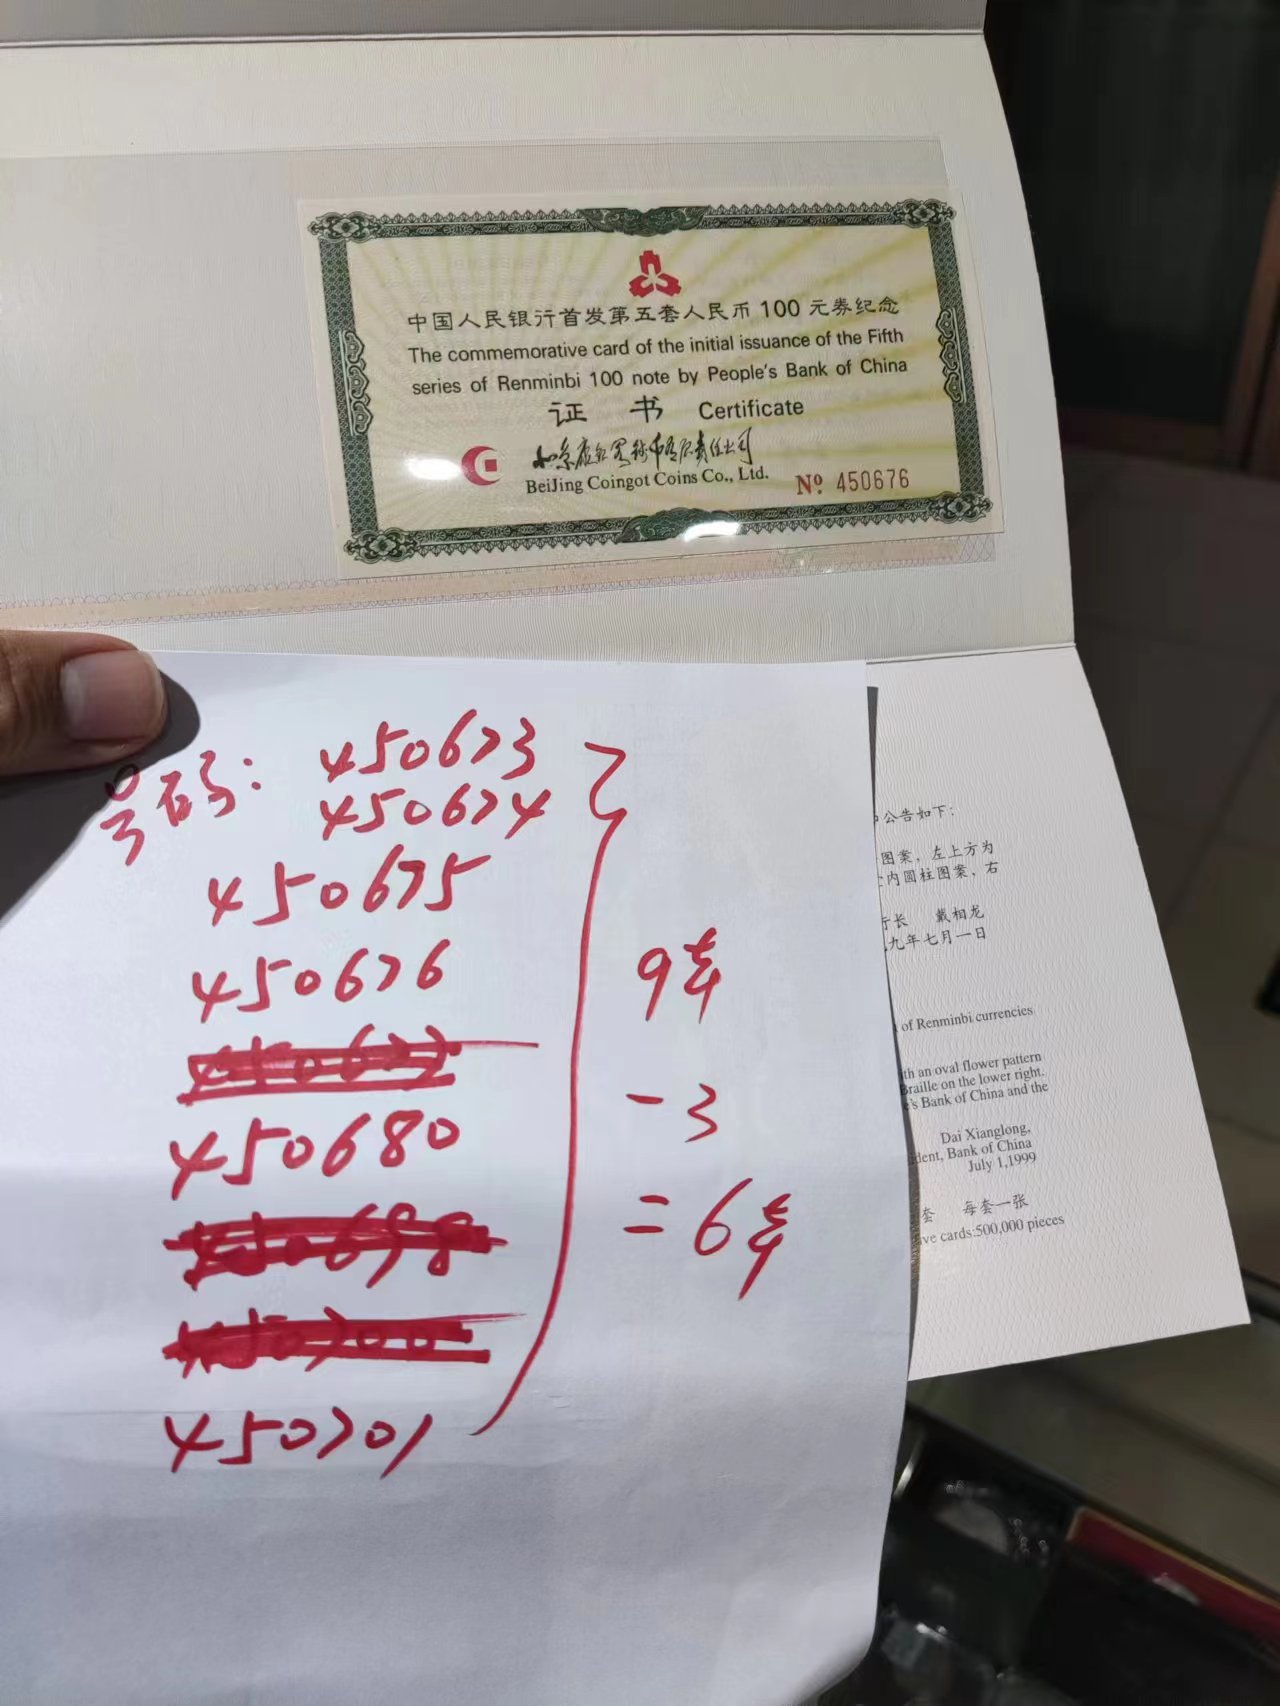 中国人民银行首发第五套人民币100元券纪念
The commemorative card of the initial issuance of the Fifth
series of Renminbi 100 note by People's Bank of China
证 书 Certificate
BeiJing Coingot Coins Co., Ltd.
№ 450676
号码: 450673
450674
450675
450676
450680
450701
9套
-3
=6套
公告如下:
图案，左上方为
内圆柱图案，右
行长 戴相龙
九年七月一日
of Renminbi currencies
with an oval flower pattern
Braille on the lower right.
's Bank of China and the
Dai Xianglong,
dent, Bank of China
July 1,1999
套 每套一张
ve cards:500,000 pieces